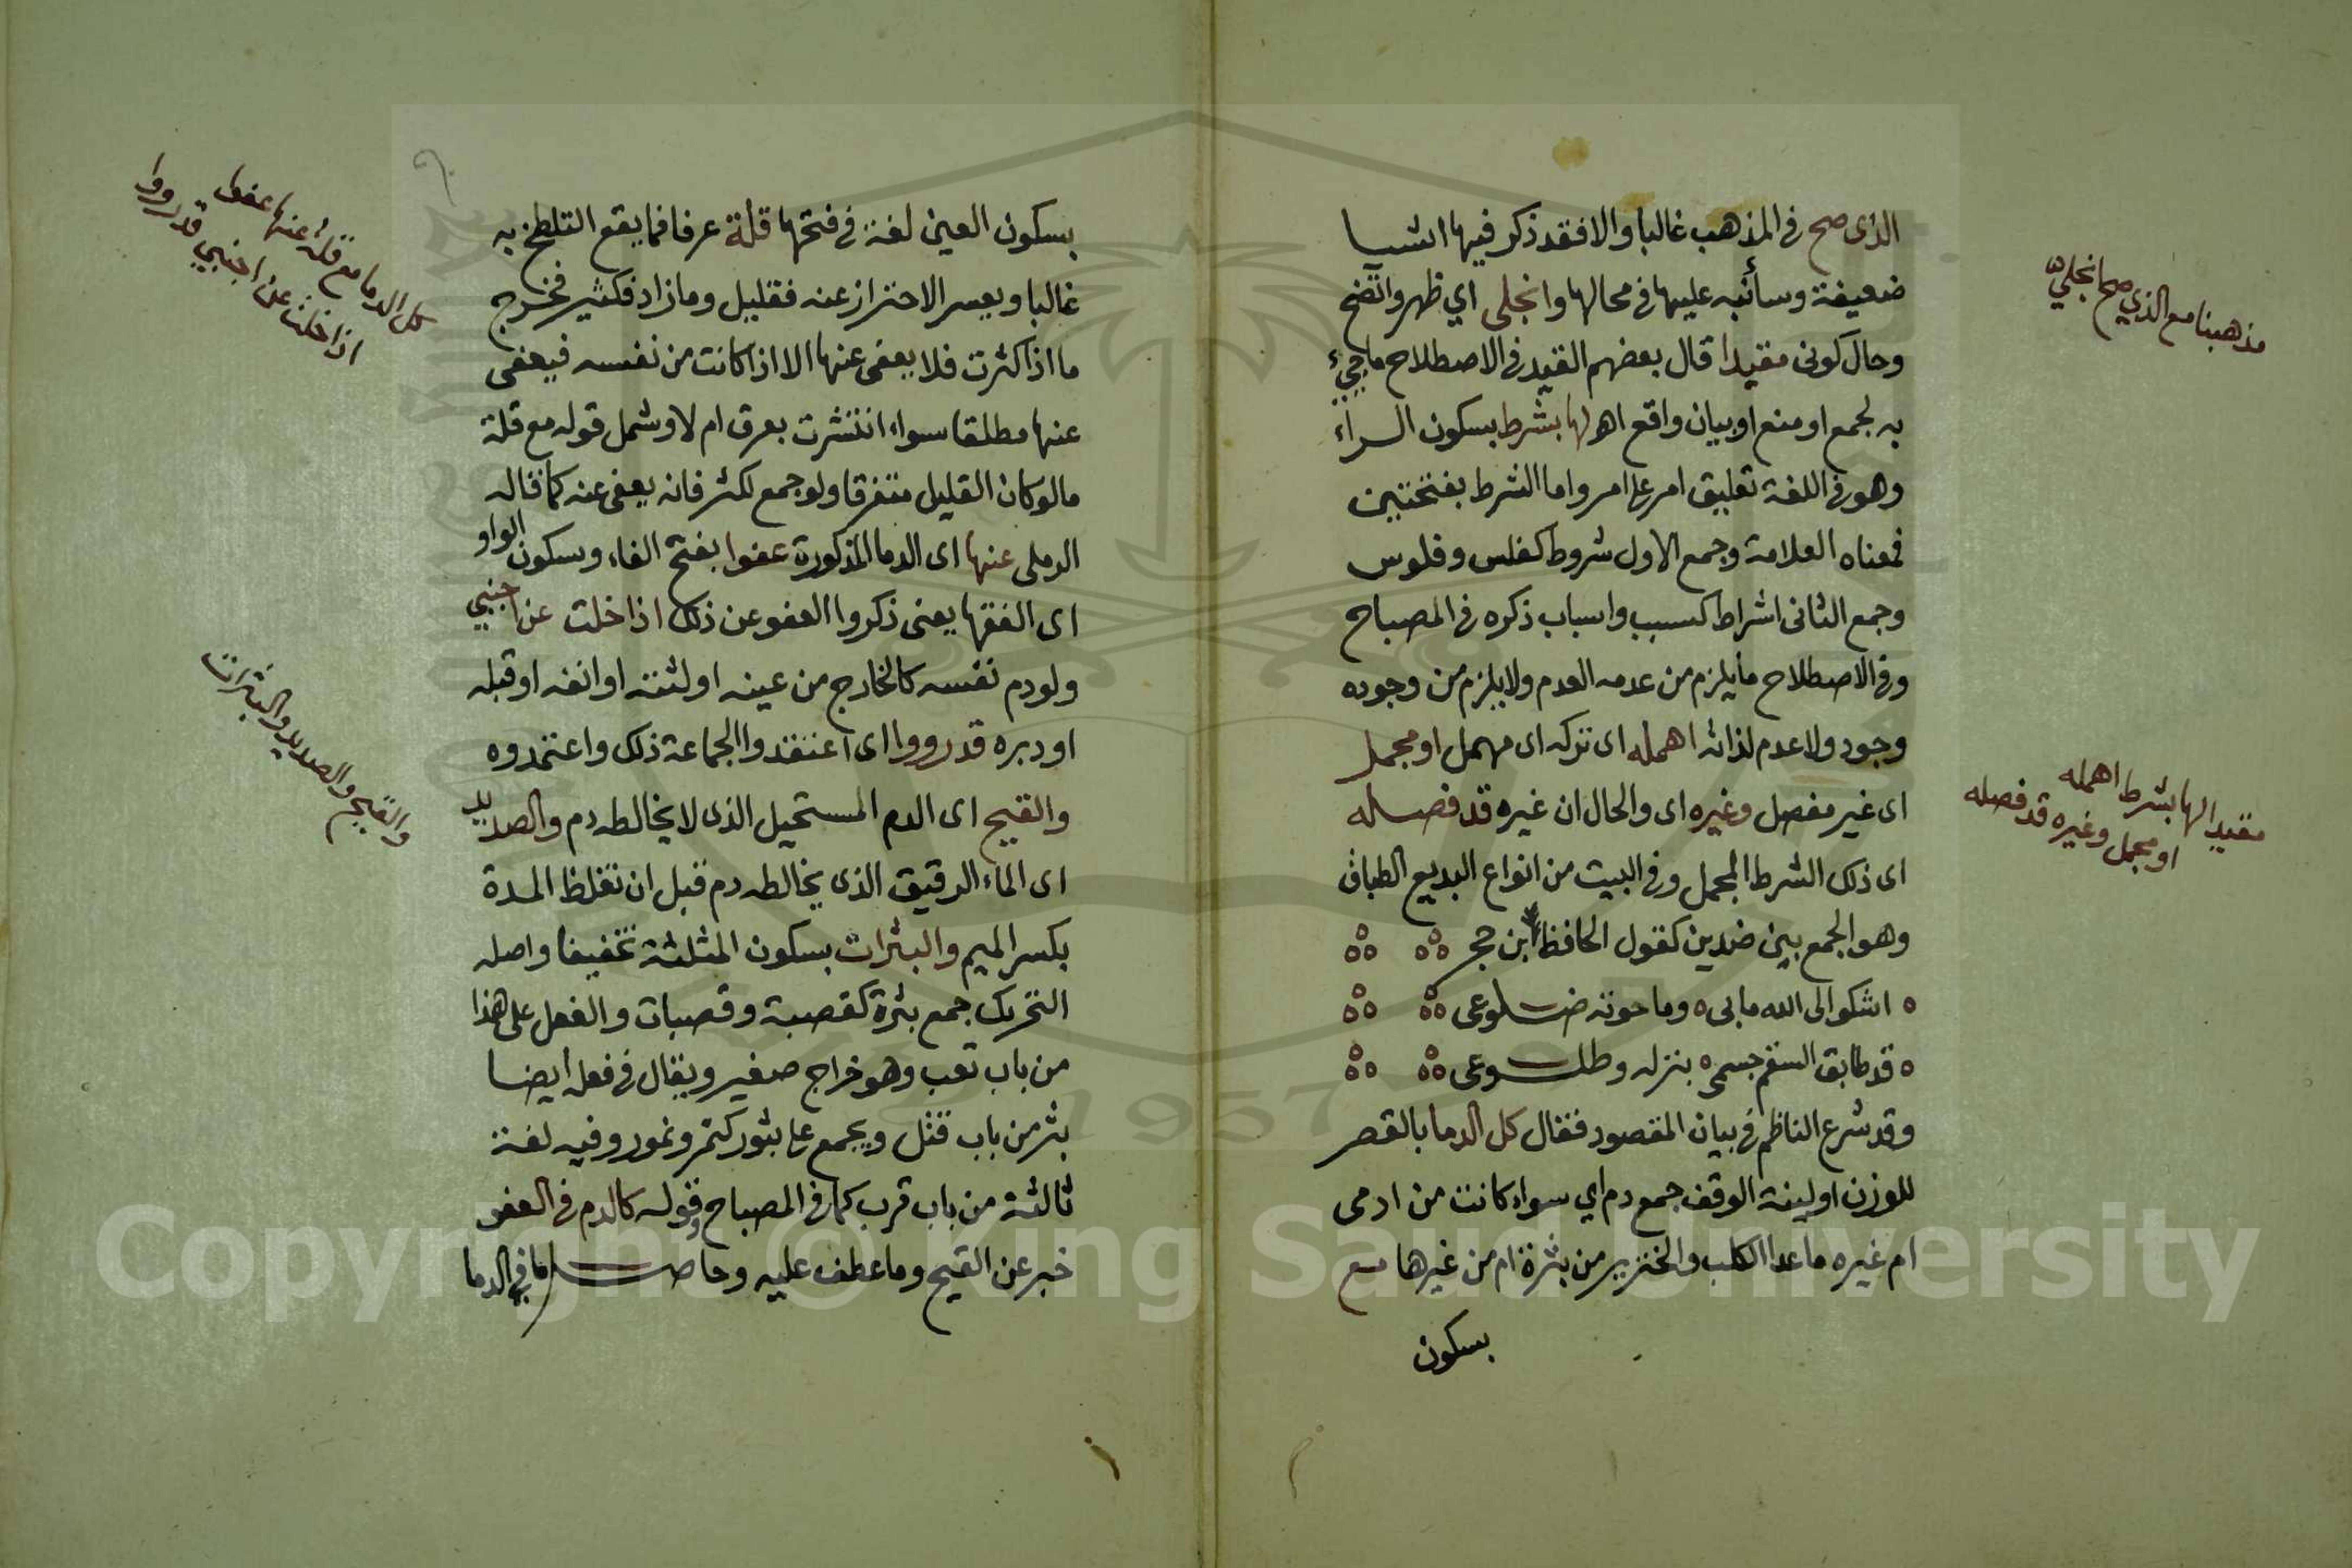 الذى صح فى المذهب غالبا والا فقد ذكر فيها اشيا
ضعيفة وسأنبه عليها فى محالها وانجلى اي ظهر واتضح
وحال كونى مقيدا قال بعضهم القيد فى الاصطلاح ما جيء
به لجمع او منع او بيان واقع اهـ لها بشرط بسكون الراء
وهو فى اللغة تعليق امر على امر واما الشرط بفتحتين
فمعناه العلامة وجمع الاول شروط كفلس وفلوس
وجمع الثانى اشراط كسبب واسباب ذكره فى المصباح
وفى الاصطلاح ما يلزم من عدمه العدم ولا يلزم من وجوده
وجود ولا عدم لذاته اهمله اى تركه اى مهمل او مجمل
اى غير مفصل وغيره اى والحال ان غيره قد فصله
اى ذلك الشرط المجمل وفى البيت من انواع البديع الطباق
وهو الجمع بين ضدين كقول الحافظ ابن حجر
اشكوا الى الله ما بى وما حوته ضلوعى
قد طابق السقم جسمى بنزله وطلوعى
وقد شرع الناظم فى بيان المقصود فقال كل الدما بالقصر
للوزن او لينة الوقف جمع دم اي سواء كانت من ادمى
ام غيره ما عدا الكلب والخنزير من بثرة ام من غيرها مع
بسكون
مذهبنا مع الذي صح انجلي
مقيدا لها بشرط اهمله
او مجمل وغيره قد فصله
بسكون العين لغة فى فتحها قلة عرفا فما يقع التلطخ به
غالبا ويعسر الاحتراز عنه فقليل وما زاد فكثير فخرج
ما اذا كثرت فلا يعفى عنها الا اذا كانت من نفسه فيعفى
عنها مطلقا سواء انتشرت بعرق ام لا وشمل قوله مع قلة
ما لو كان القليل متفرقا ولو جمع لكثر فانه يعفى عنه كما قاله
الرملى عنها اى الدما المذكورة عفوا بفتح الفاء وسكون الواو
اى الفقها يعنى ذكروا العفو عن ذلك اذا خلت عن اجنبي
ولو دم نفسه كالخارج من عينه او لثته او انفه او قبله
او دبره قد رووا اى اعتقدوا الجماعة ذلك واعتمدوه
والقيح اى الدم المستحيل الذى لا يخالطه دم والصديد
اى الماء الرقيق الذى يخالطه دم قبل ان تغلظ المدة
بكسر الميم والبثرات بسكون المثلثة تخفيفا واصله
التحريك جمع بثرة كقصبة وقصبات والفعل على هذا
من باب تعب وهو خراج صغير ويقال فى فعله ايضا
بثر من باب قتل ويجمع على بثور كتمر وتمور وفيه لغة
ثالثة من باب قرب كما فى المصباح وقوله كالدم فى العفو
خبر عن القيح وما عطف عليه وحاصل ما في الدما
كل الدما مع قلة عنها عفوا
اذا خلت عن اجنبي قد رووا
والقيح والصديد والبثرات
Copyright © King Saud University
1957